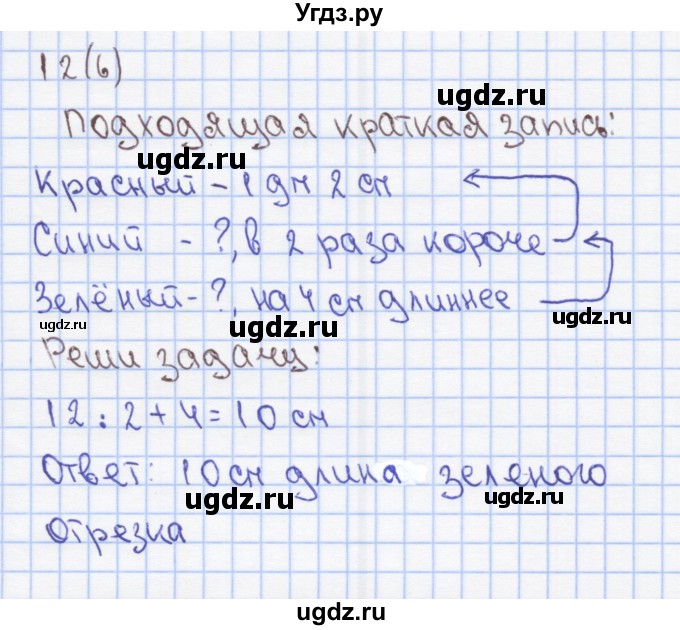 Угдз.ру
12(6)
ugdz.ru
Подходящая краткая запись:
ugdz.ru
Красный - 1 дм 2 см
Синий - ?, в 2 раза короче
Зелёный - ?, на 4 см длиннее
ugdz.ru ugdz.ru ugdz.ru
Реши задачу:
12 : 2 + 4 = 10 см
Ответ: 10 см длина зеленого
ugdz.ru ugdz.ru
отрезка
ugdz.ru